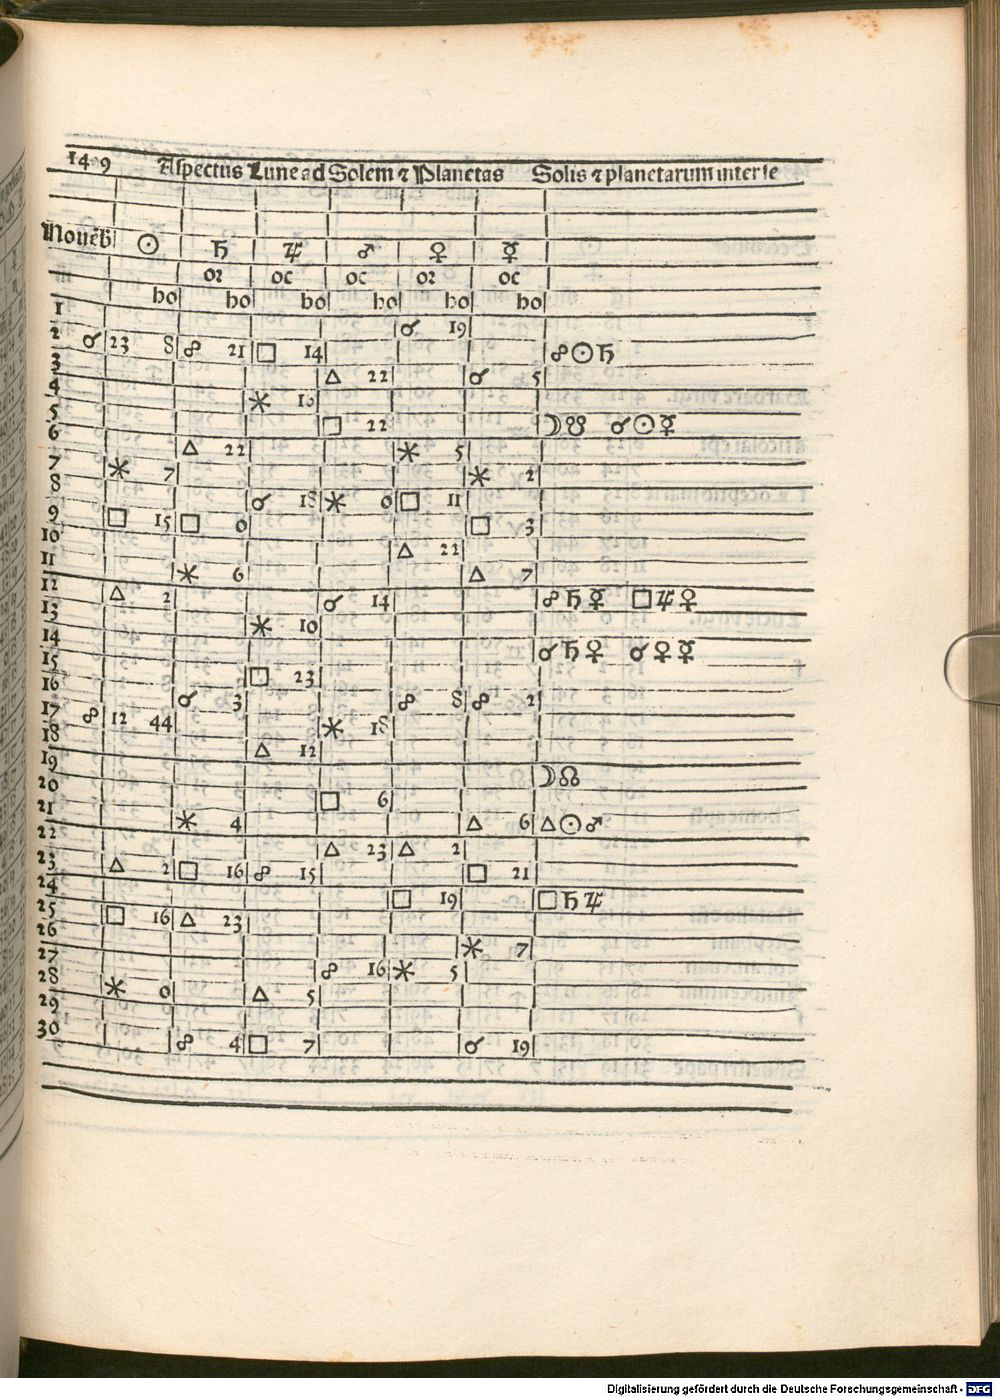 Aspectus Lune ad Solem ⁊ Planetas Solis ⁊ planetarum inter se
Nouēb ☉ ♄ ♃ ♂ ♀ ☿
or oc oc or oc
ho ho ho ho ho ho
1 ☌ 19
2 ☌ 23 8 ☍ 21 □ 14 ☍☉♄
3 △ 22 ☌ 5
4 ⚹ 16
5 □ 22 ☽☋ ☌☉☿
6 △ 22 ⚹ 5
7 ⚹ 7 ⚹ 2
8 ☌ 18 ⚹ 0 □ 11
9 □ 15 □ 0 □ 3
10 △ 22
11 ⚹ 6 △ 7
12 △ 2 ☌ 14 ☍♄☿ □♃♀
13 ⚹ 10
14 ☌♄♀ ☌♀☿
15 □ 23
16 ☌ 3 ☍ 8 ☍ 21
17 ☍ 12 44 ⚹ 18
18 △ 12
19 ☽☊
20 □ 6
21 ⚹ 4 △ 6 △☉♂
22 △ 23 △ 2
23 △ 2 □ 16 ☍ 15 □ 21
24 □ 19 □♄♃
25 □ 16 △ 23
26 ⚹ 7
27 ☍ 16 ⚹ 5
28 ⚹ 0 △ 5
29
30 ☍ 4 □ 7 ☌ 19
Digitalisierung gefördert durch die Deutsche Forschungsgemeinschaft - DFG